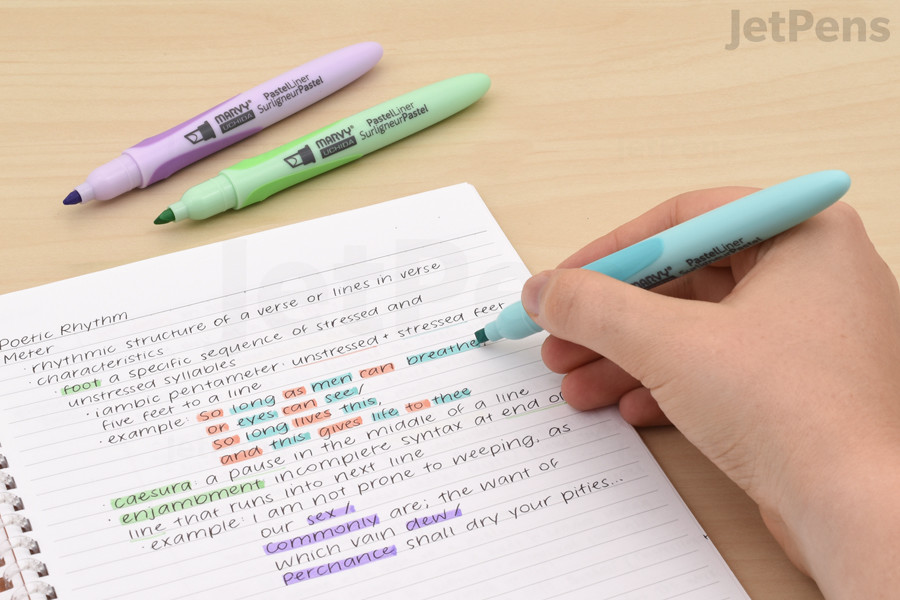 JetPens
MARVY
UCHIDA
PastelLiner
SurligneurPastel
MARVY
UCHIDA
PastelLiner
SurligneurPastel
MARVY
PastelLiner
JetPens
Poetic Rhythm
Meter
· rhythmic structure of a verse or lines in verse
· characteristics
· foot a specific sequence of stressed and
unstressed syllables
· iambic pentameter: unstressed + stressed feet
five feet to a line
· example: so long as men can breathe
or eyes can see/
so long lives this,
and this gives life to thee
· caesura: a pause in the middle of a line
· enjambment incomplete syntax at end of
line that runs into next line
· example: I am not prone to weeping, as
our sex/
commonly are; the want of
which vain dew/
perchance shall dry your pities...